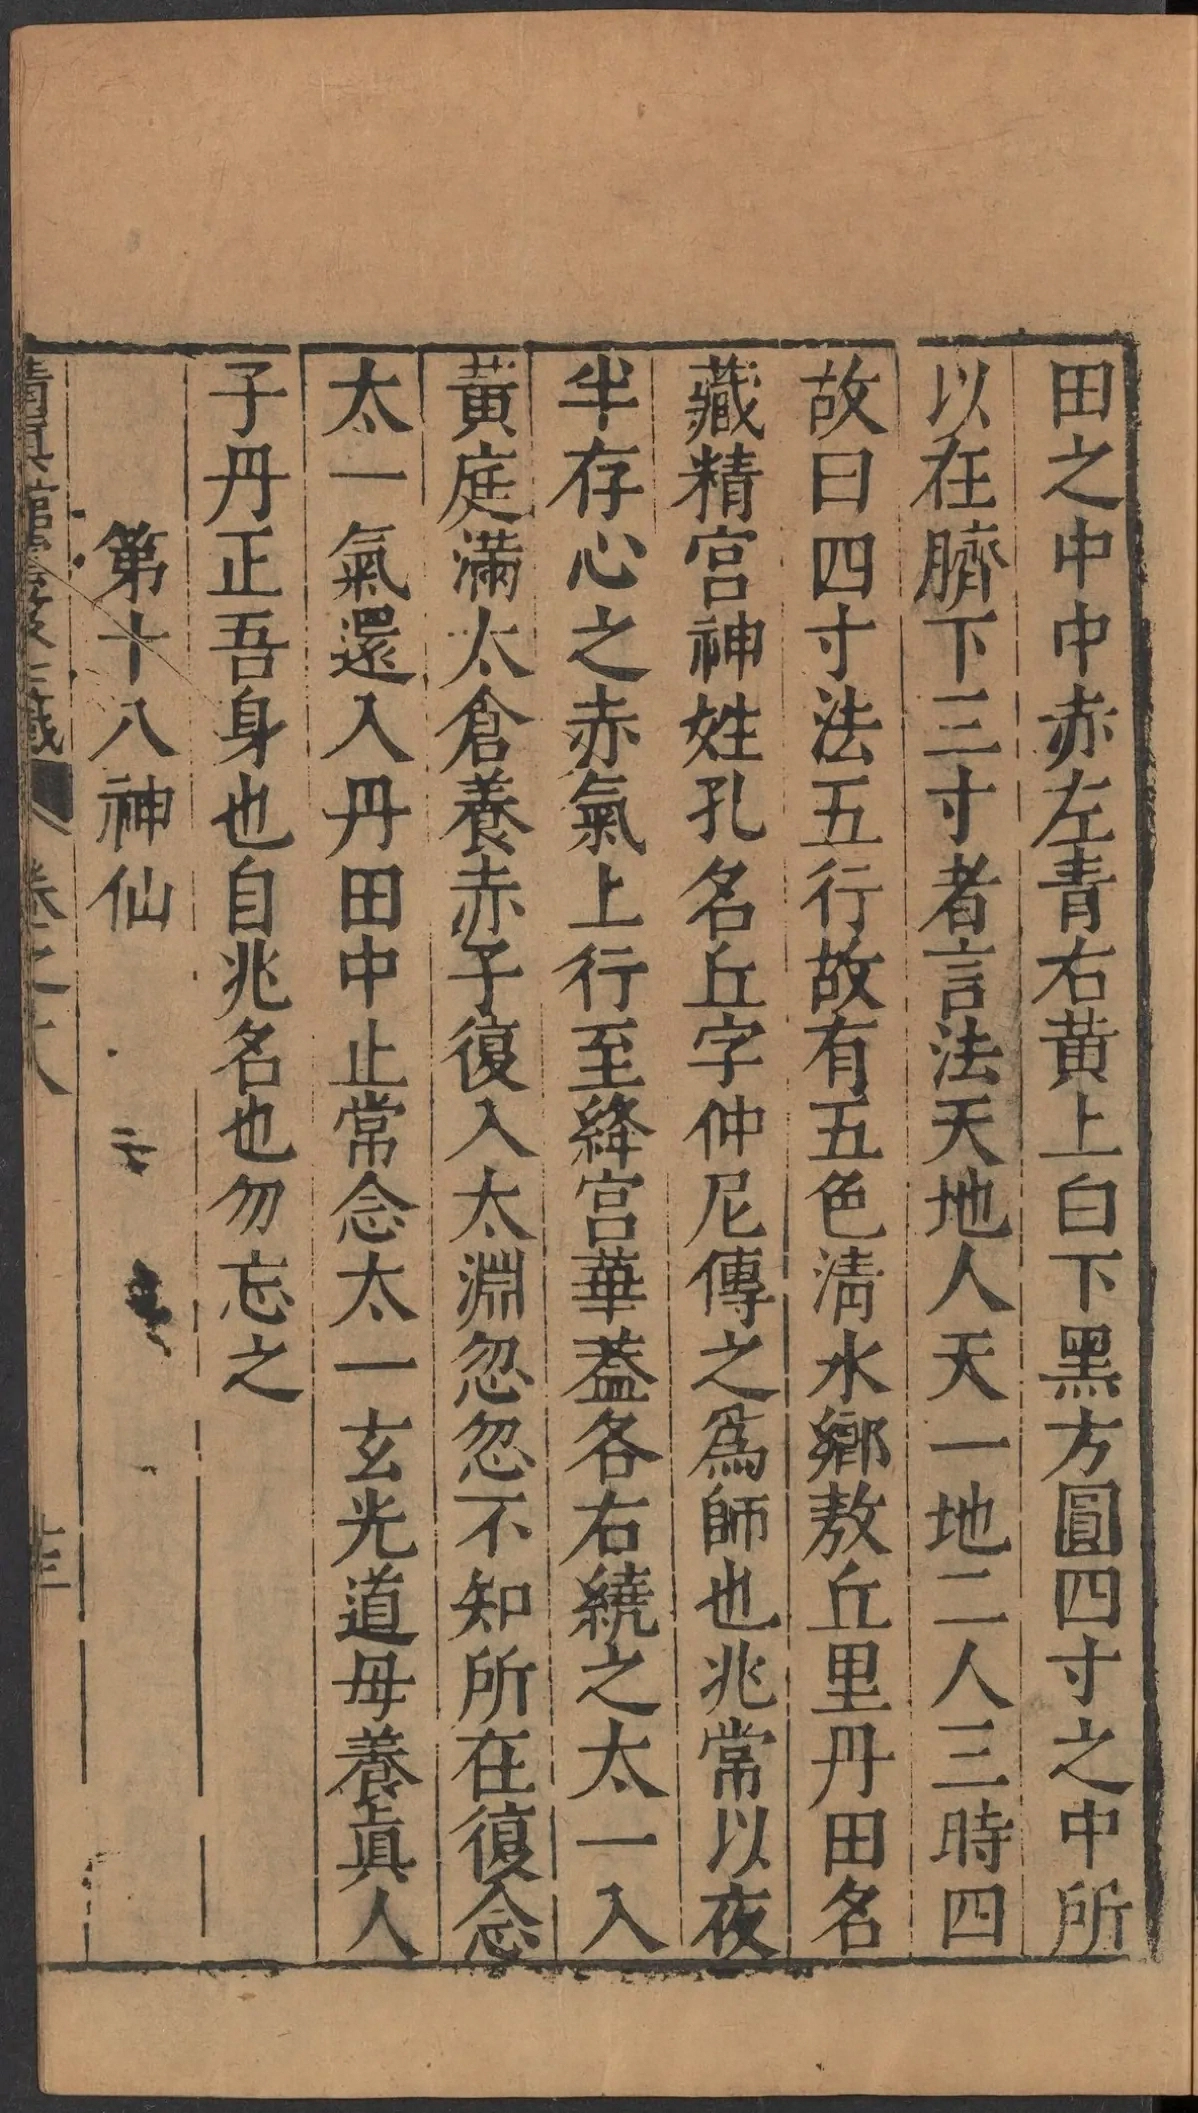 田之中中赤左青右黄上白下黑方圓四寸之中所
以在臍下三寸者言法天地人天一地二人三時四
故曰四寸法五行故有五色清水鄉敖丘里丹田名
藏精宮神姓孔名丘字仲尼傳之爲師也兆常以夜
半存心之赤氣上行至絳宮華蓋各右繞之太一入
黃庭滿太倉養赤子復入太淵忽忽不知所在復念
太一氣還入丹田中止常念太一玄光道母養眞人
子丹正吾身也自兆名也勿忘之
第十八神仙
卷之十八